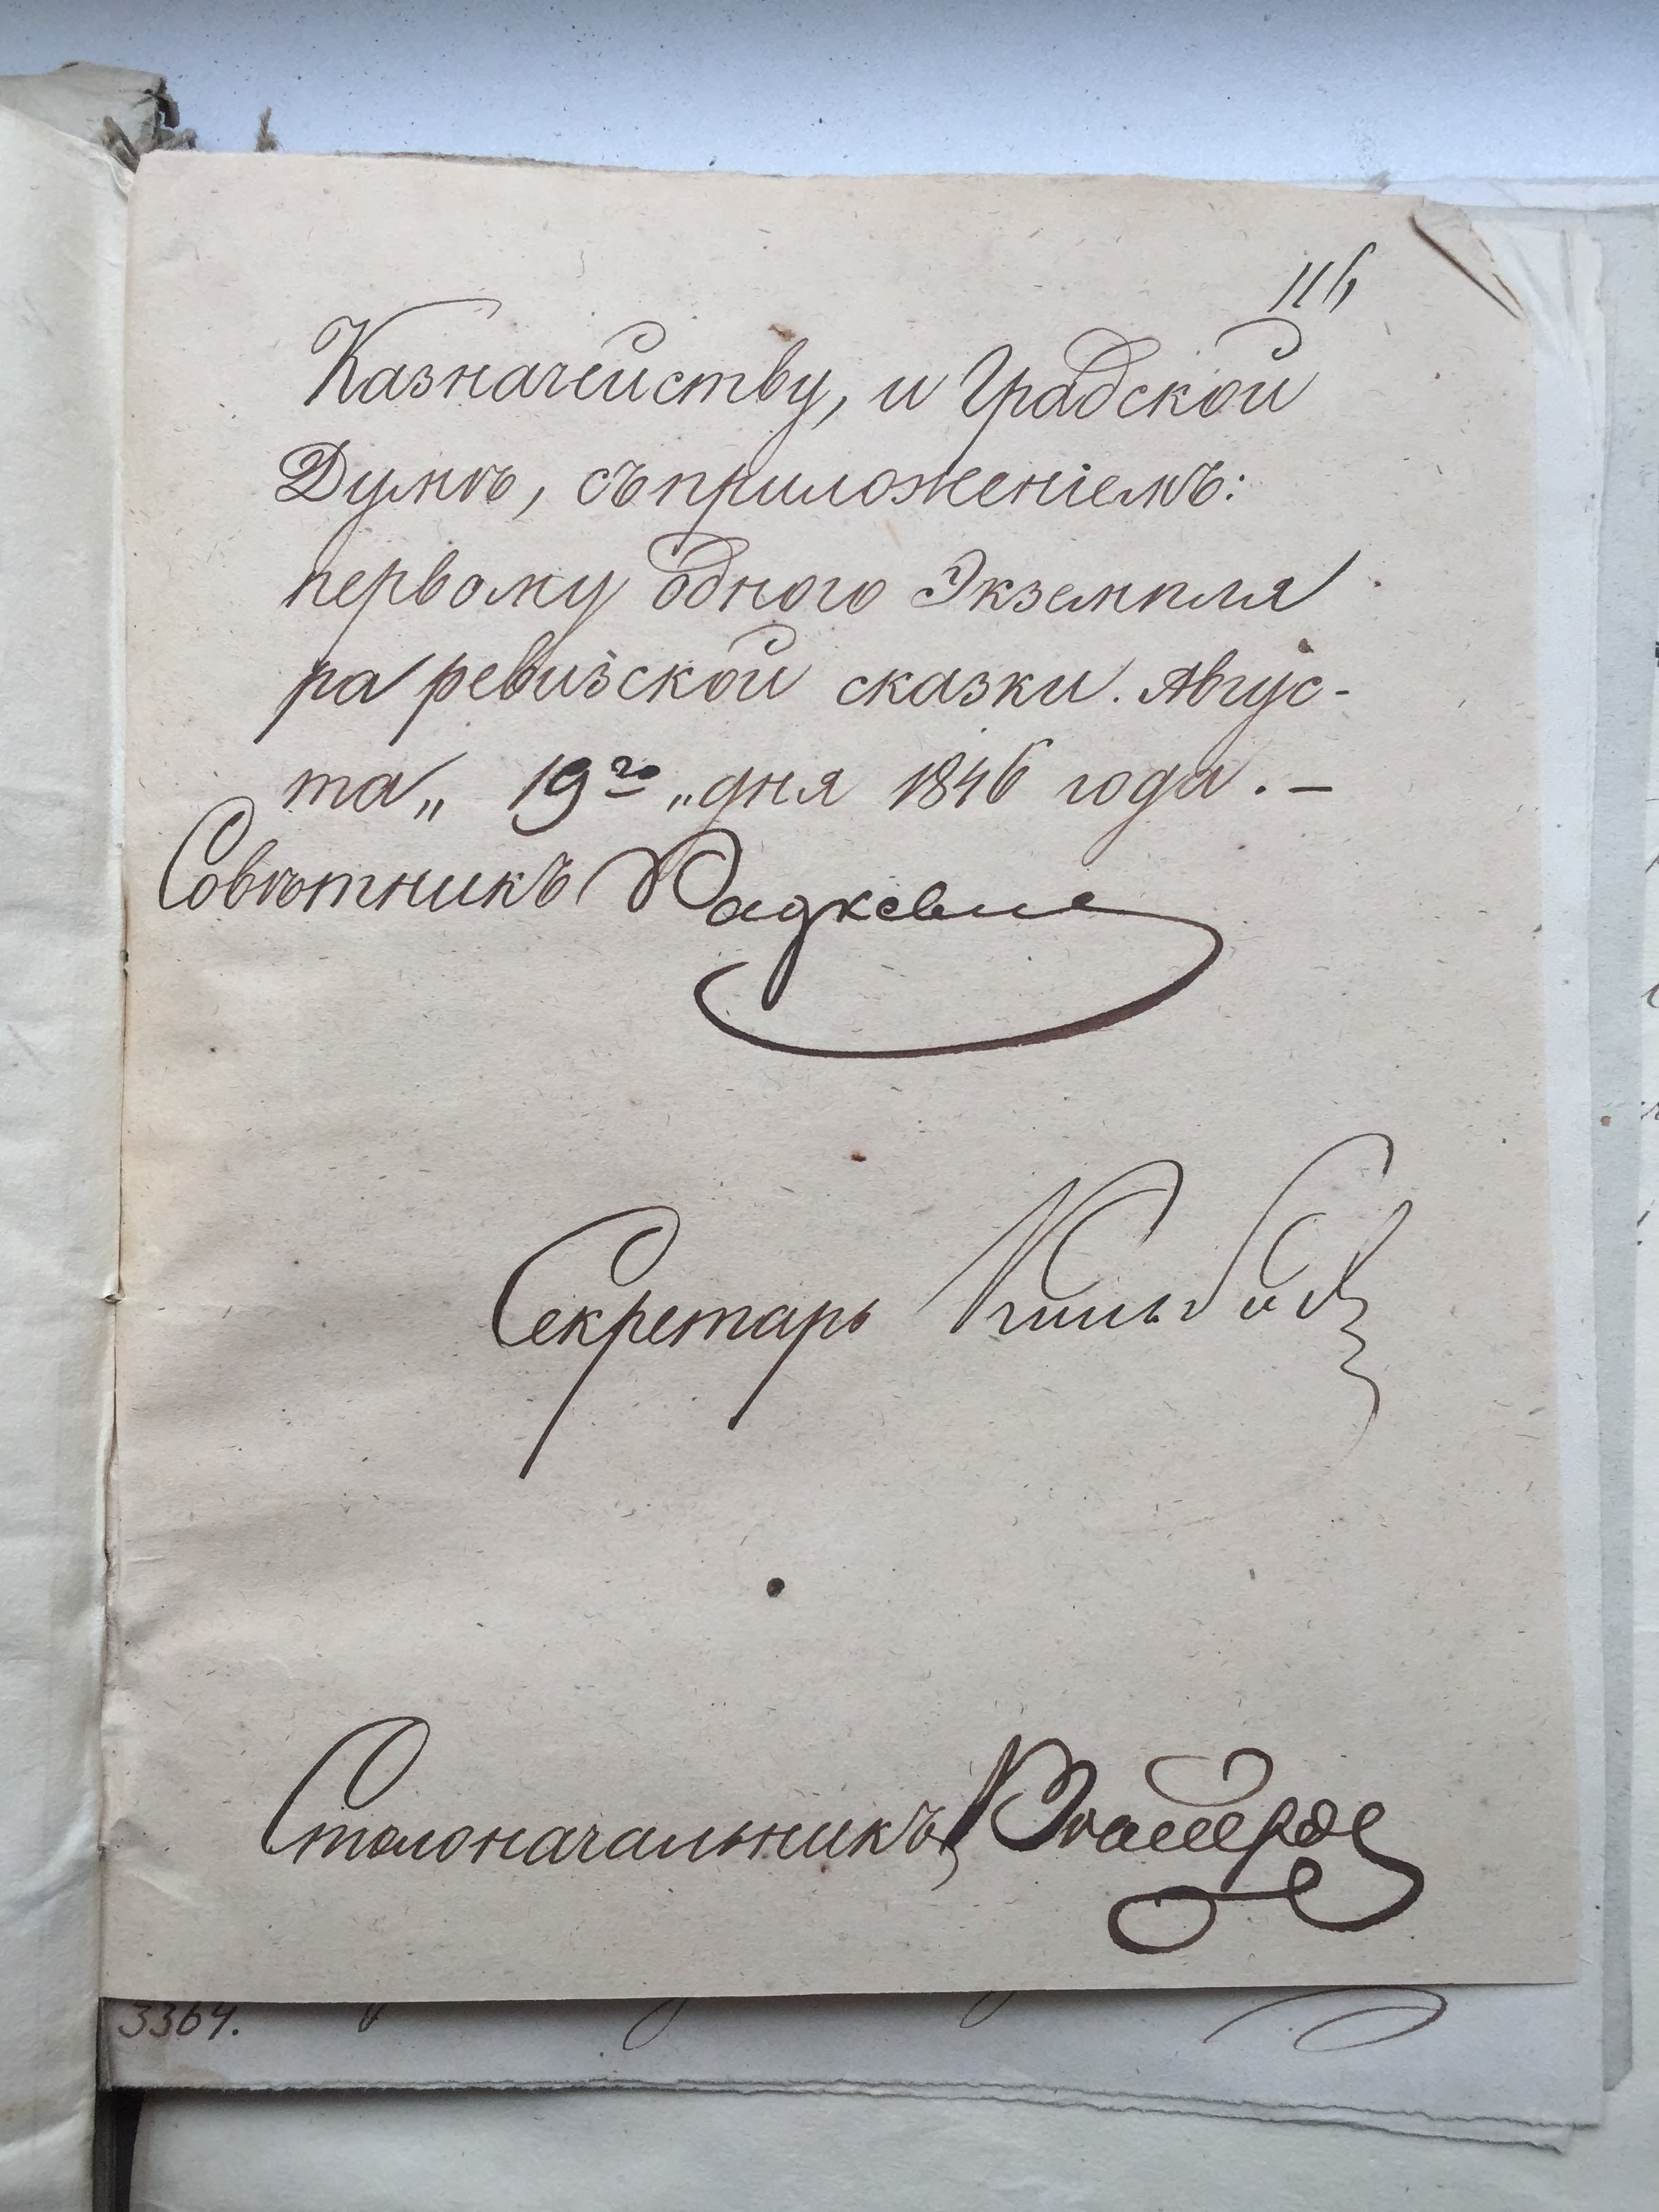 116
Казначейству, и Градской
Думѣ, съ приложеніемъ:
первому одного Экземпля
ра ревизской сказки. Авгус-
та „ 19го „ дня 1846 года. —
Совѣтникъ Радкевич
Секретарь
Столоначальникъ
3364.